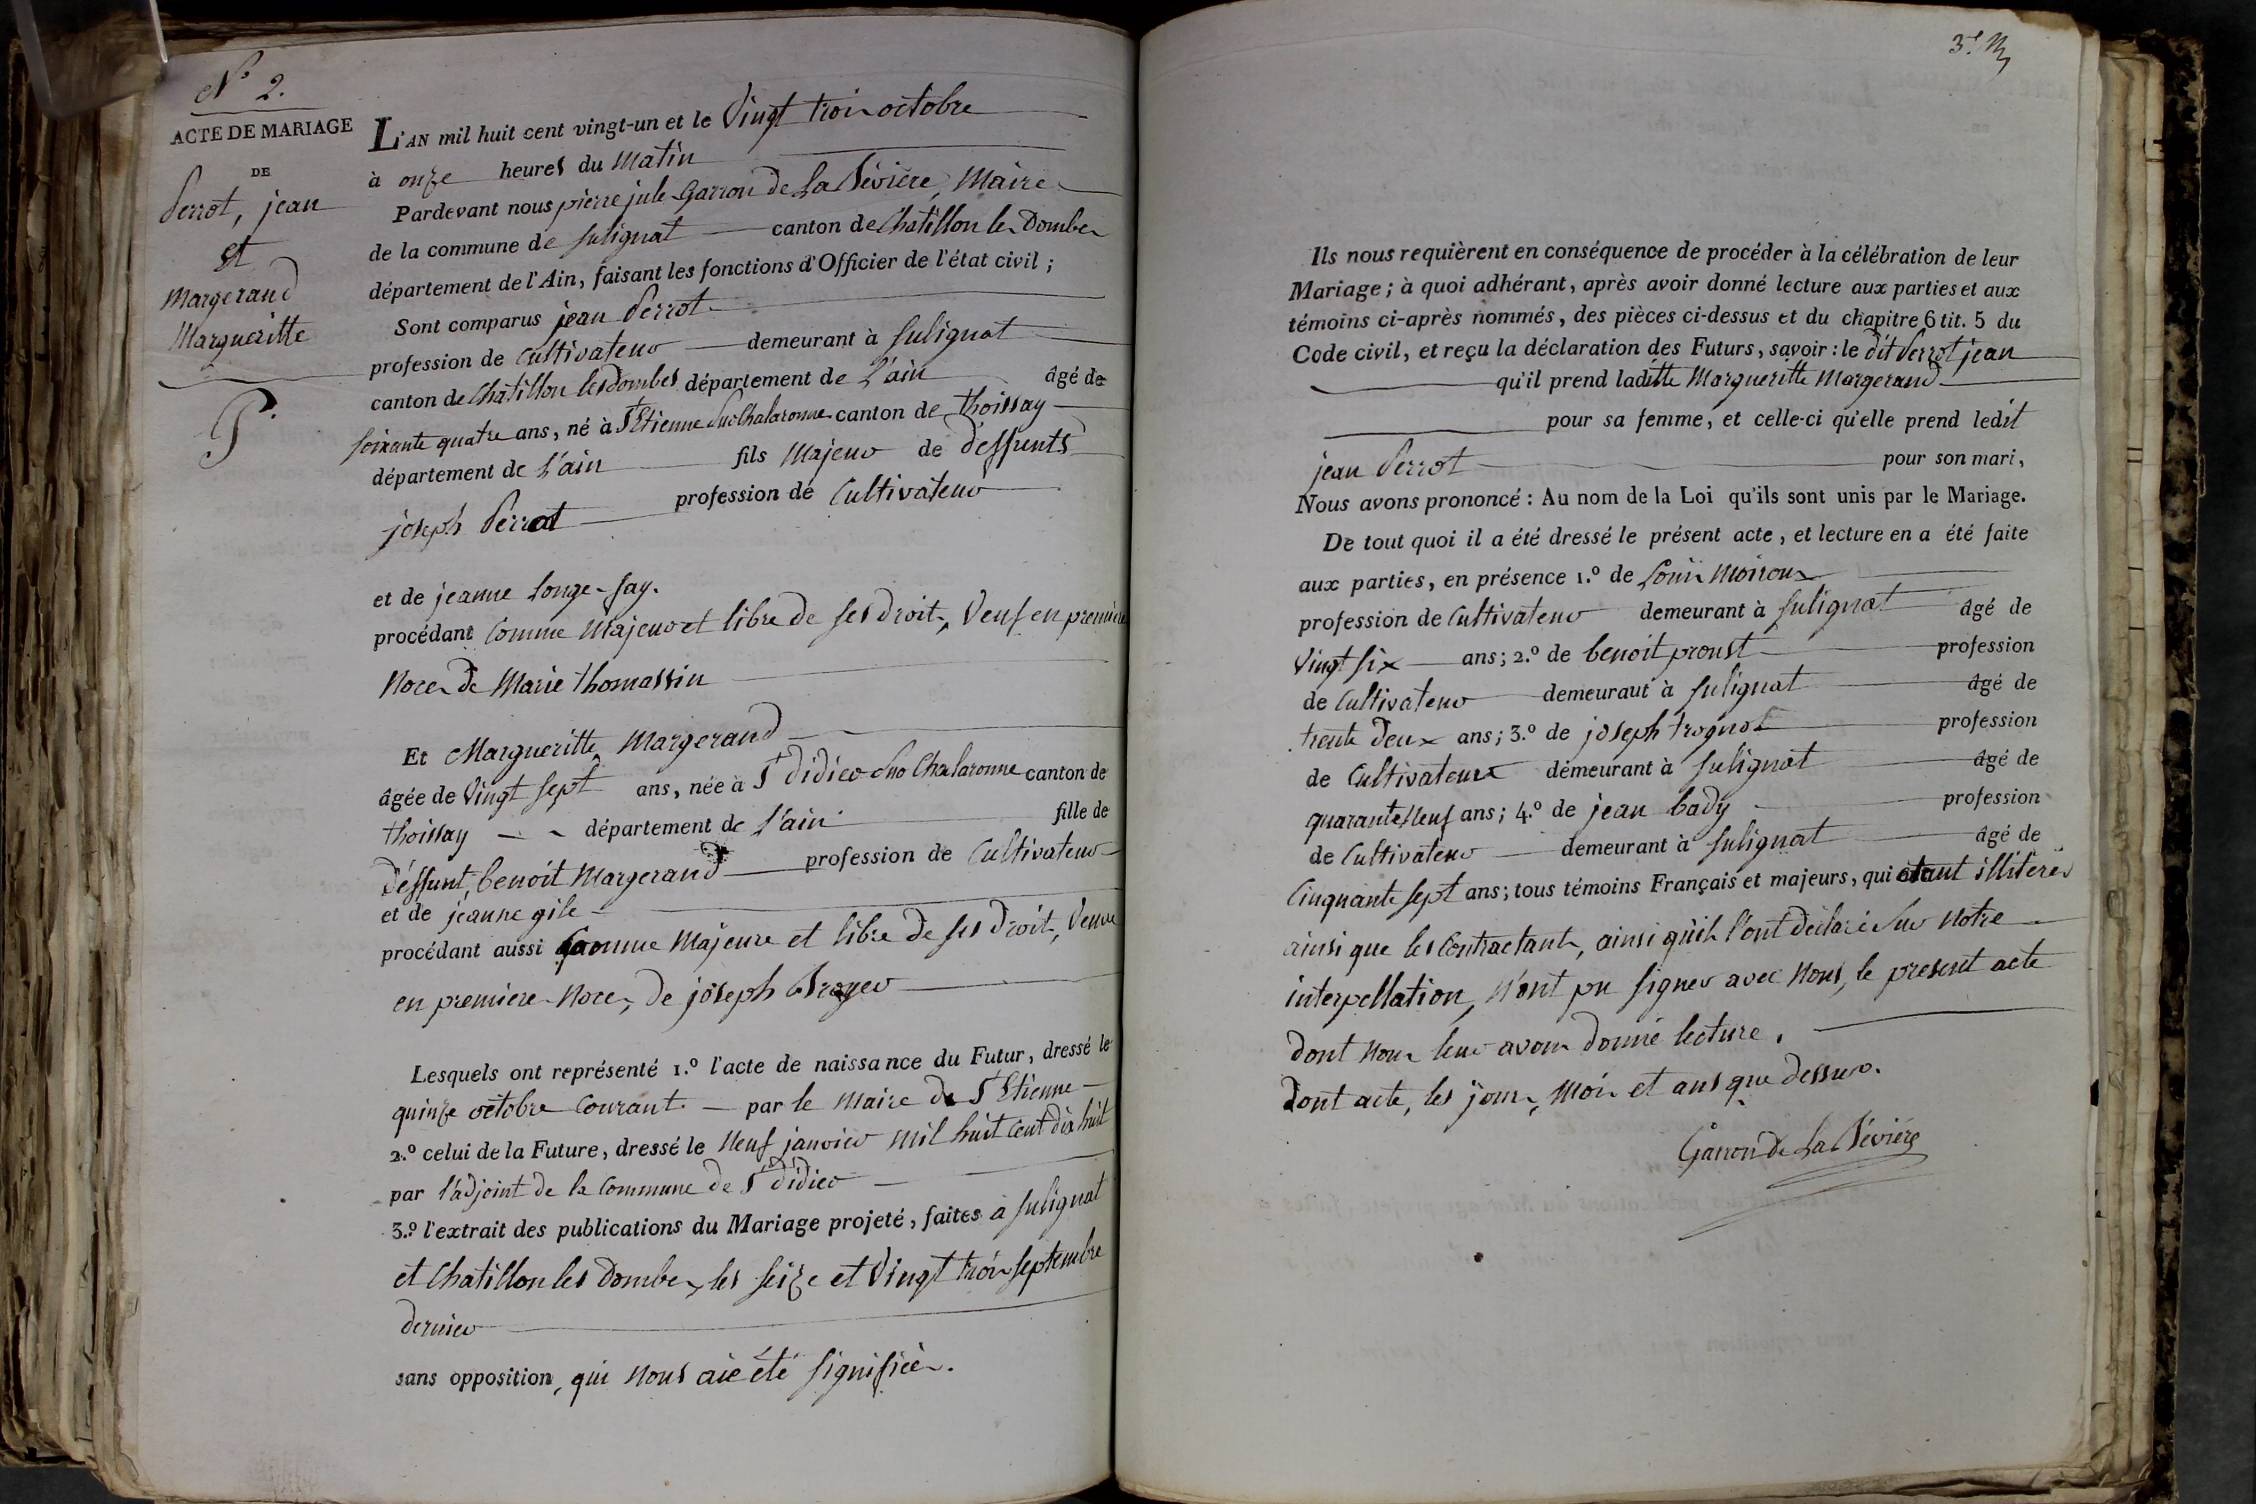 N.° 2.
ACTE DE MARIAGE
DE
Perrot, jean
et
Margerand
Margueritte
P.
L'AN mil huit cent vingt-un et le Vingt trois octobre
à onze heures du Matin
Pardevant nous pierre jule Garron de La Bévière, Maire
de la commune de Sulignat canton de Chatillon les Dombes
département de l'Ain, faisant les fonctions d'Officier de l'état civil ;
Sont comparus jean Perrot
profession de Cultivateur demeurant à Sulignat
canton de Chatillon les dombes département de L'ain âgé de
soixante quatre ans, né à St Etienne sur Chalaronne canton de thoissay
département de L'ain fils Majeur de deffunts
joseph Perrot profession de Cultivateur
et de jeanne Longe-fay.
procédant Comme Majeur et libre de ses droits, Veuf en premiere
Noces de Marie thomassin
Et Margueritte Margerand
âgée de Vingt sept ans, née à St didier sur Chalaronne canton de
thoissay département de L'ain fille de
déffunt benoit Margerand profession de Cultivateur
et de jéanne gile
procédant aussi Comme Majeure et libre de ses droits, Veuve
en premiere Noces, de joseph Broyer
Lesquels ont représenté 1.° l'acte de naissance du Futur, dressé le
quinze octobre Courant par le Maire de St Etienne
2.° celui de la Future, dressé le Neuf janvier Mil huit Cent dix huit
par l'adjoint de la Commune de St didier
3.° l'extrait des publications du Mariage projeté, faites à Sulignat
et Chatillon les Dombes, les seize et Vingt trois septembre
dernier
sans opposition, qui Nous aie été signifiées.
3.e M
Ils nous requièrent en conséquence de procéder à la célébration de leur
Mariage ; à quoi adhérant, après avoir donné lecture aux parties et aux
témoins ci-après nommés, des pièces ci-dessus et du chapitre 6 tit. 5 du
Code civil, et reçu la déclaration des Futurs, savoir : le dit Perrot jean
qu'il prend laditte Margueritte Margerand
pour sa femme, et celle-ci qu'elle prend ledit
jean Perrot pour son mari,
Nous avons prononcé : Au nom de la Loi qu'ils sont unis par le Mariage.
De tout quoi il a été dressé le présent acte, et lecture en a été faite
aux parties, en présence 1.° de Louis Moiroux
profession de Cultivateur demeurant à Sulignat âgé de
Vingt six ans ; 2.° de benoit proust profession
de Cultivateur demeuraut à Sulignat âgé de
trente deux ans ; 3.° de joseph trognot profession
de Cultivateur demeurant à Sulignat âgé de
quarante Neuf ans ; 4.° de jean bady profession
de Cultivateur demeurant à Sulignat âgé de
Cinquante sept ans ; tous témoins Français et majeurs, qui étant illiterés
ainsi que les Contractants, ainsi qu'ils l'ont déclaré sur Notre
interpellation, N'ont pu signer avec Nous, le present acte
dont Nous leur avons donné lecture.
dont acte, les jour, Mois et ans que dessus.
Garron de La Bévière